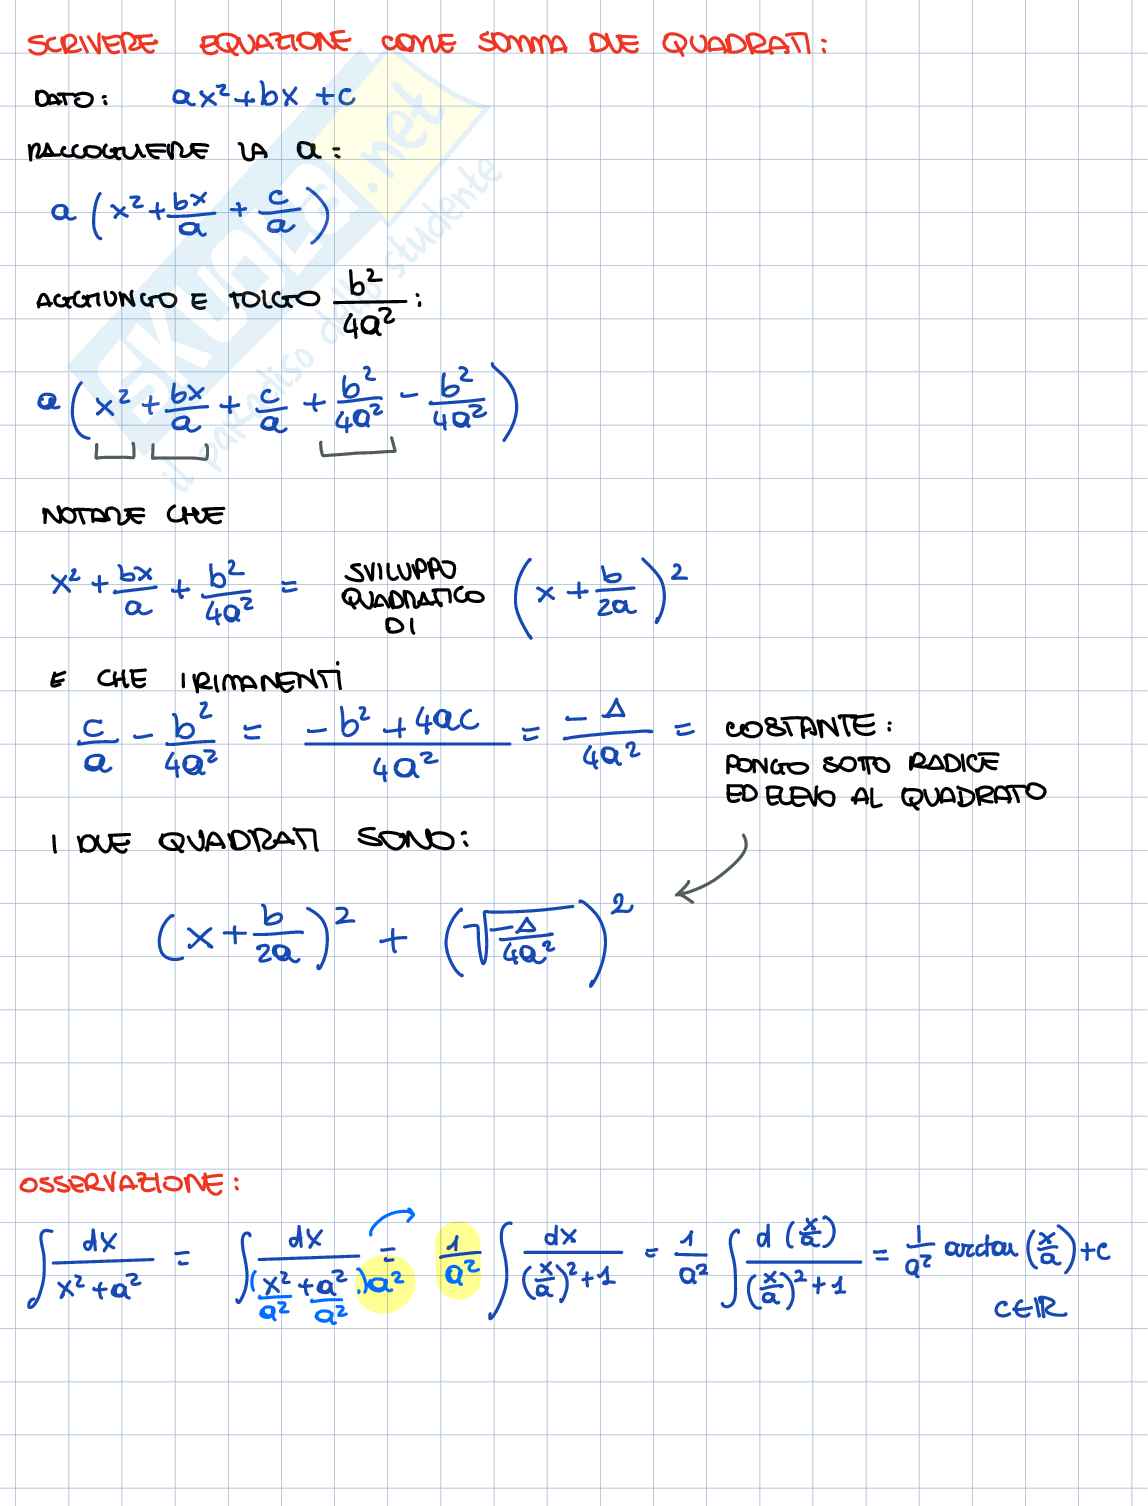 SCRIVERE EQUAZIONE COME SOMMA DUE QUADRATI:
DATO: ax²+bx+c
RACCOGLIERE LA a:
a (x² + bx/a + c/a)
AGGIUNGO E TOLGO b²/4a²:
a (x² + bx/a + c/a + b²/4a² - b²/4a²)
NOTARE CHE
x² + bx/a + b²/4a² = SVILUPPO QUADRATICO DI (x + b/2a)²
E CHE I RIMANENTI
c/a - b²/4a² = (-b² + 4ac)/4a² = -Δ/4a² = COSTANTE:
PONGO SOTTO RADICE
ED ELEVO AL QUADRATO
I DUE QUADRATI SONO:
(x + b/2a)² + (√(-Δ/4a²))²
OSSERVAZIONE:
∫ dx/(x²+a²) = ∫ dx/((x²/a² + a²/a²)·a²) = 1/a² ∫ dx/((x/a)²+1) = 1/a² ∫ d(x/a)/((x/a)²+1) = 1/a² arctan(x/a)+c
c∈ℝ
SKUOLA.net
il paradiso dello studente